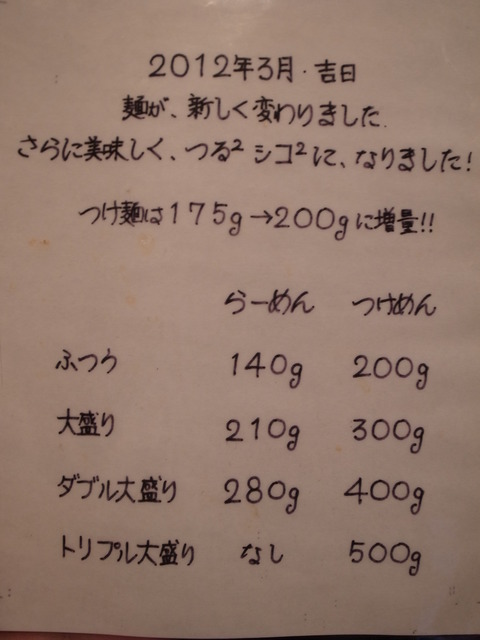 2012年3月・吉日
麺が、新しく変わりました.
さらに美味しく、つる² シコ²に、なりました!
つけ麺は175g→200gに増量!!
らーめん つけめん
ふつう 140g 200g
大盛り 210g 300g
ダブル大盛り 280g 400g
トリプル大盛り なし 500g